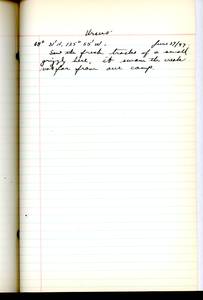 Ursus
68° N, 135° W. June 27/47
Saw the fresh tracks of a small
grizzly here. it swam the creek
not far from our camp.